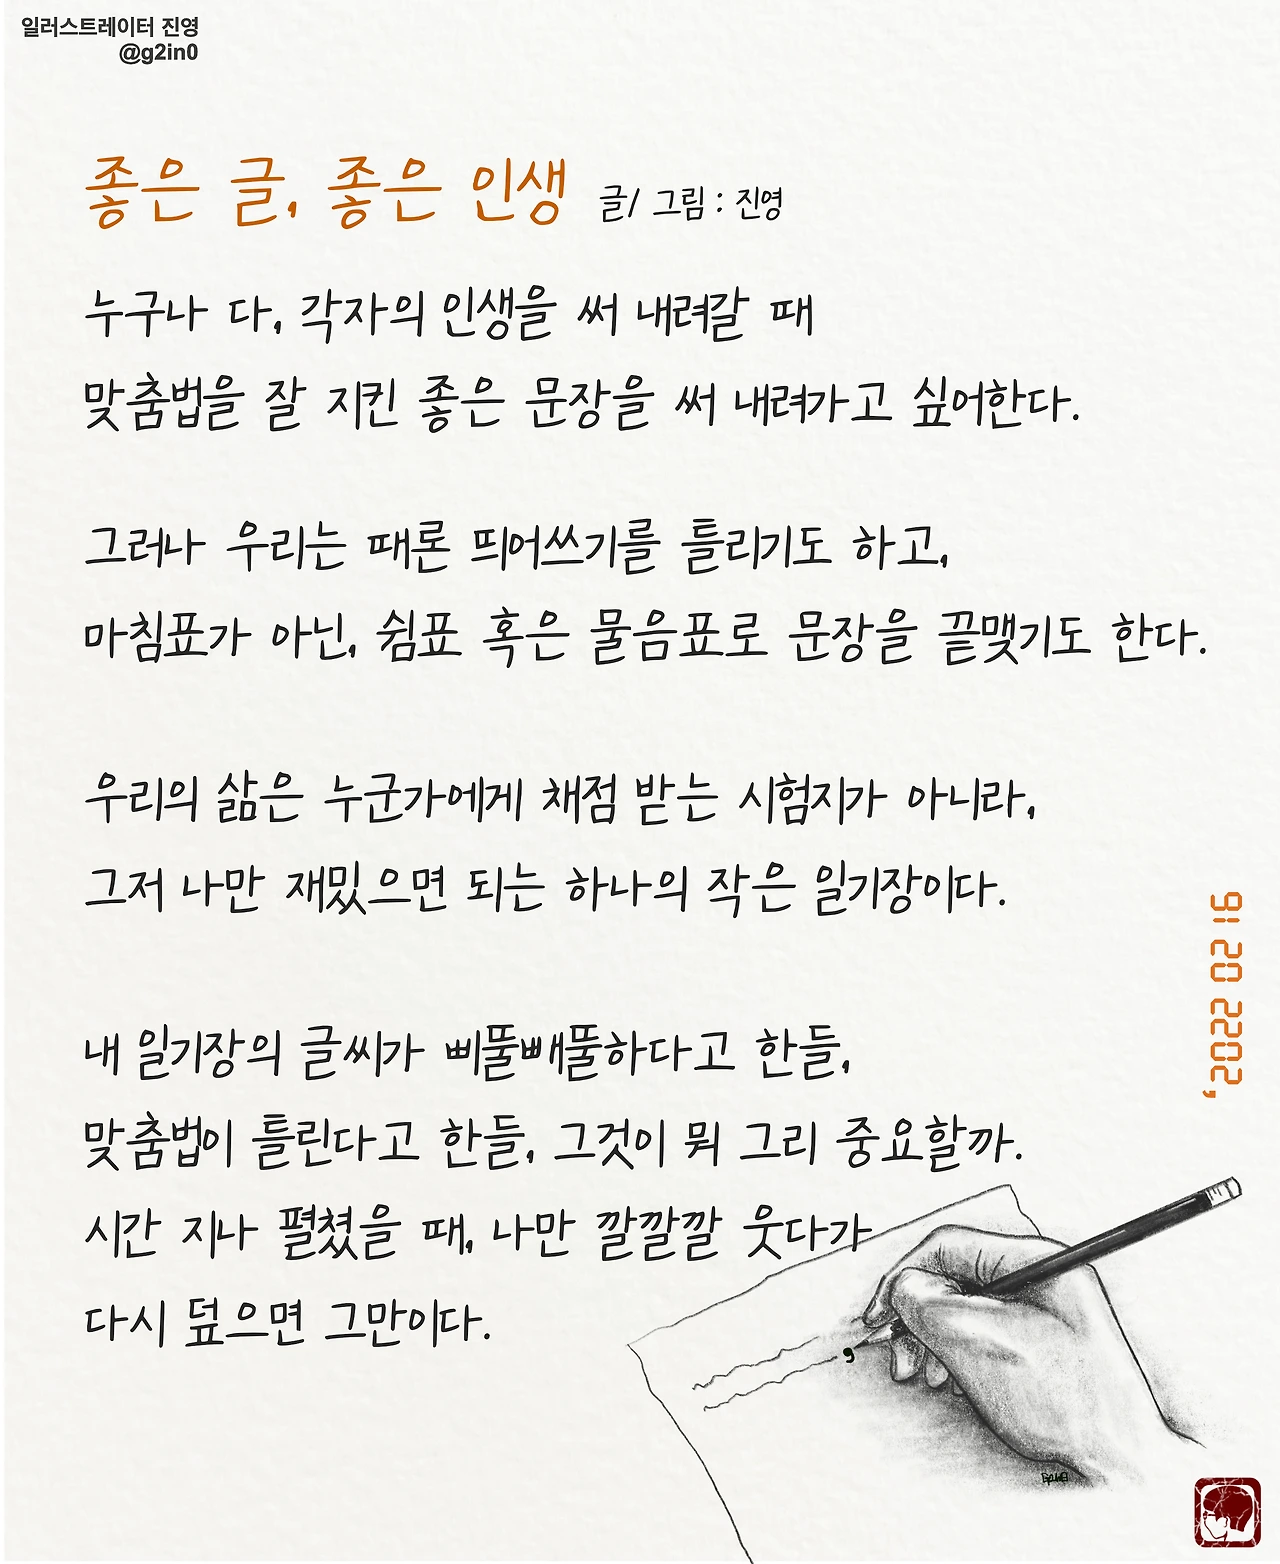 일러스트레이터 진영
@g2in0
좋은 글, 좋은 인생 글/ 그림 : 진영
누구나 다, 각자의 인생을 써 내려갈 때
맞춤법을 잘 지킨 좋은 문장을 써 내려가고 싶어한다.
그러나 우리는 때론 띄어쓰기를 틀리기도 하고,
마침표가 아닌, 쉼표 혹은 물음표로 문장을 끝맺기도 한다.
우리의 삶은 누군가에게 채점 받는 시험지가 아니라,
그저 나만 재밌으면 되는 하나의 작은 일기장이다.
내 일기장의 글씨가 삐뚤빼뚤하다고 한들,
맞춤법이 틀린다고 한들, 그것이 뭐 그리 중요할까.
시간 지나 펼쳤을 때, 나만 깔깔깔 웃다가
다시 덮으면 그만이다.